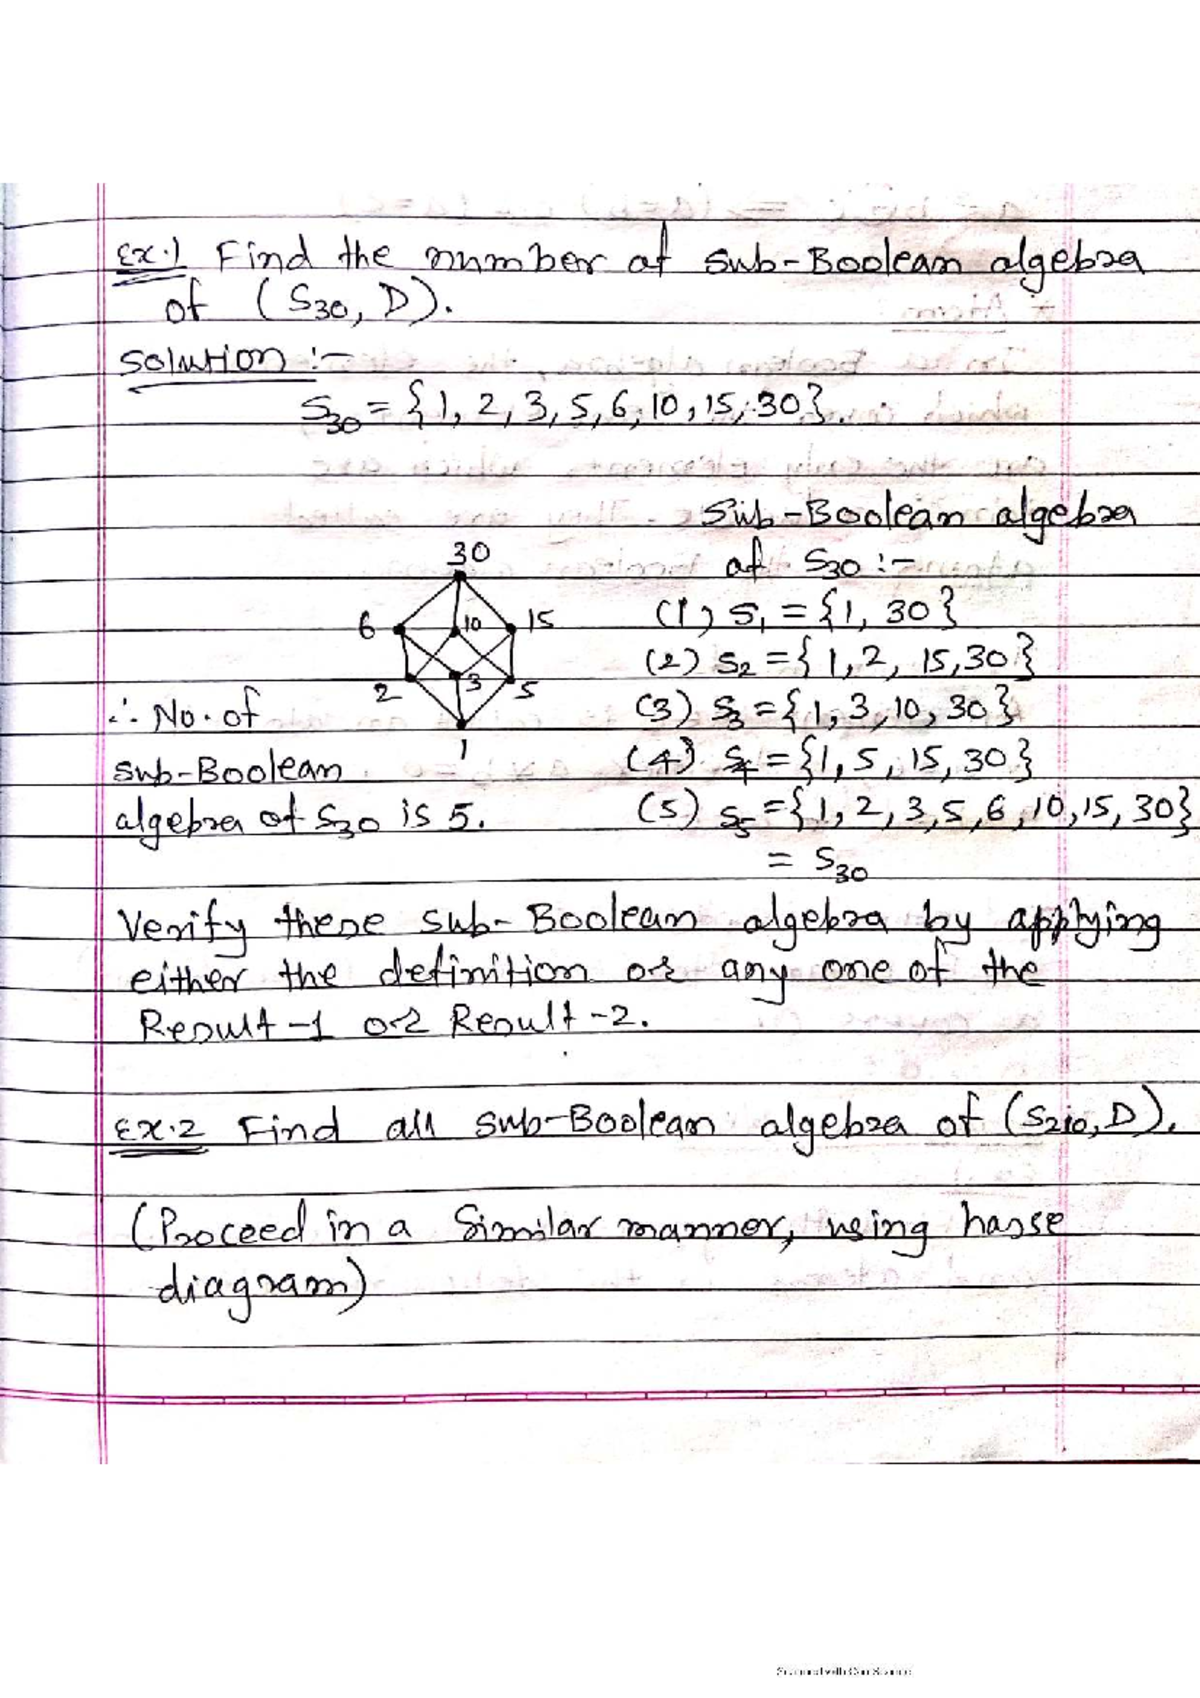 Ex.1 Find the number of sub-Boolean algebra
of (S30, D).
Solution :-
S30 = {1, 2, 3, 5, 6, 10, 15, 30}.
Sub-Boolean algebra
of S30 :-
30
6 10 15
2 3 5
1
(1) S1 = {1, 30}
(2) S2 = {1, 2, 15, 30}
(3) S3 = {1, 3, 10, 30}
(4) S4 = {1, 5, 15, 30}
(5) S5 = {1, 2, 3, 5, 6, 10, 15, 30}
= S30
∴ No. of
sub-Boolean
algebra of S30 is 5.
Verify these sub-Boolean algebra by applying
either the definition or any one of the
Result-1 or Result-2.
Ex.2 Find all sub-Boolean algebra of (S210, D).
(Proceed in a similar manner, using hasse
diagram)